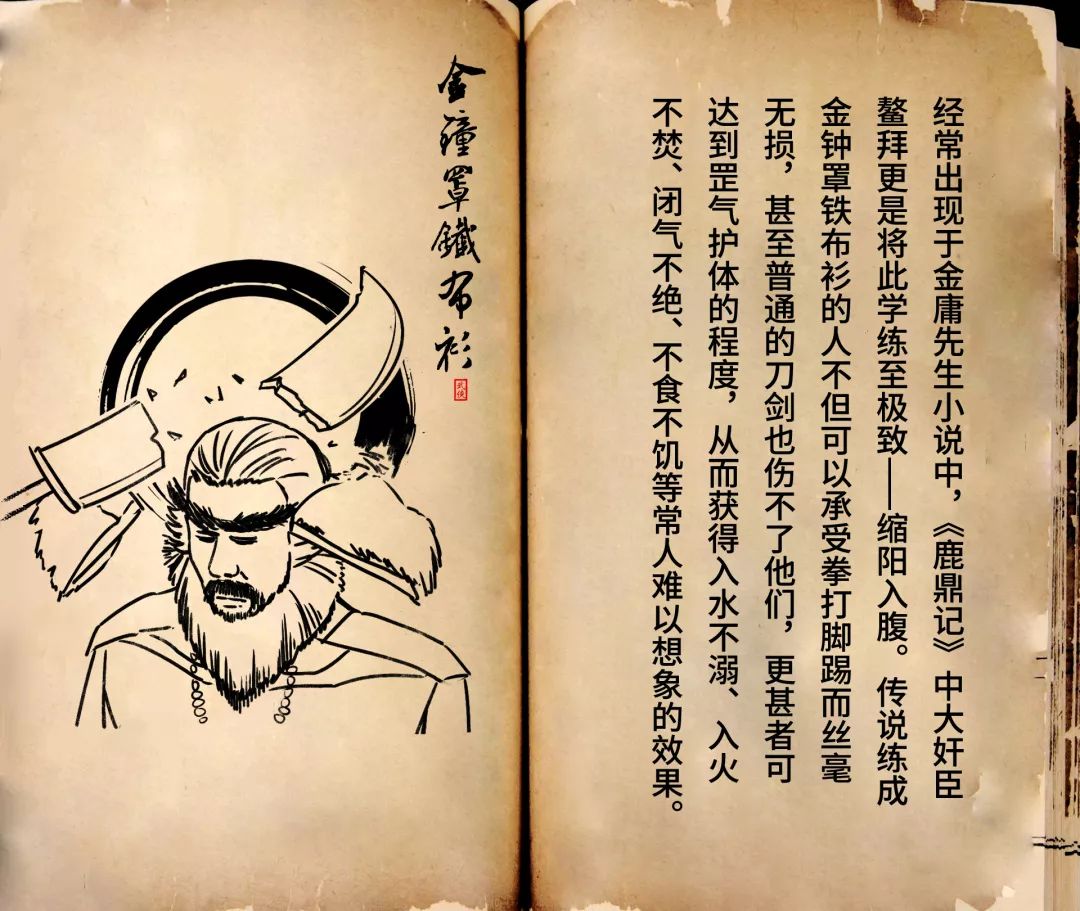 金鐘罩鐵布衫
武俠
经常出现于金庸先生小说中，《鹿鼎记》中大奸臣
鳌拜更是将此学练至极致——缩阳入腹。传说练成
金钟罩铁布衫的人不但可以承受拳打脚踢而丝毫
无损，甚至普通的刀剑也伤不了他们，更甚者可
达到罡气护体的程度，从而获得入水不溺、入火
不焚、闭气不绝、不食不饥等常人难以想象的效果。